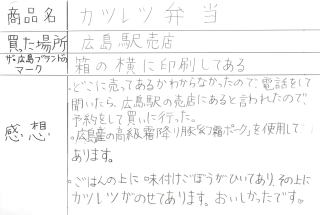 商品名 カツレツ弁当
買った場所 広島駅売店
ザ・広島ブランドの
マーク 箱の横に印刷してある
感想
・どこに売ってあるかわからなかったので、電話をして
聞いたら、広島駅の売店にあると言われたので、
予約をして買いに行った。
・広島産の高級霜降り豚「幻霜ポーク」を使用して
あります。
・ごはんの上に味付けごぼうがひいてあり、その上に
カツレツがのせてあります。おいしかったです。